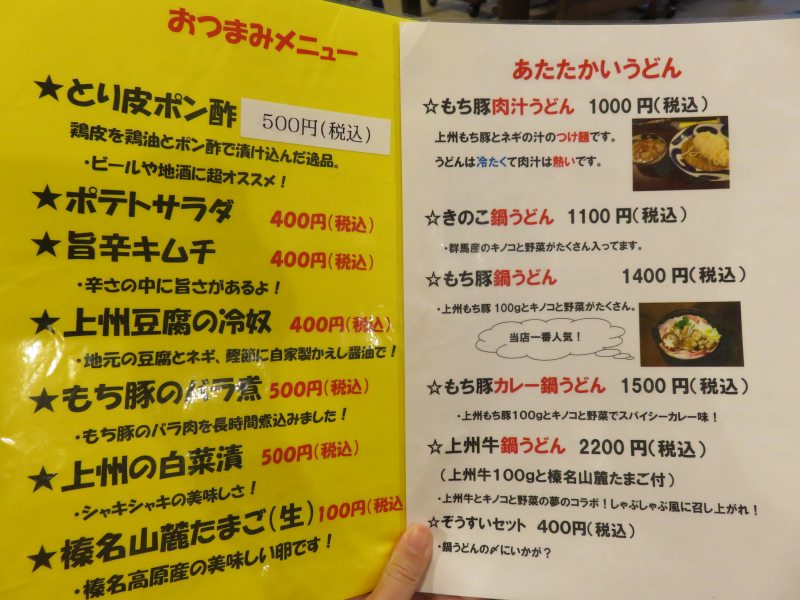 おつまみメニュー
★とり皮ポン酢 500円(税込)
鶏皮を鶏油とポン酢で漬け込んだ逸品。
・ビールや地酒に超オススメ！
★ポテトサラダ 400円(税込)
★旨辛キムチ 400円(税込)
・辛さの中に旨さがあるよ！
★上州豆腐の冷奴 400円(税込)
・地元の豆腐とネギ、鰹節に自家製かえし醤油で！
★もち豚のバラ煮 500円(税込)
・もち豚のバラ肉を長時間煮込みました！
★上州の白菜漬 500円(税込)
・シャキシャキの美味しさ！
★榛名山麓たまご(生) 100円(税込
・榛名高原産の美味しい卵です！
あたたかいうどん
☆もち豚肉汁うどん 1000円(税込)
上州もち豚とネギの汁のつけ麺です。
うどんは冷たくて肉汁は熱いです。
☆きのこ鍋うどん 1100円(税込)
・群馬産のキノコと野菜がたくさん入ってます。
☆もち豚鍋うどん 1400円(税込)
・上州もち豚100gとキノコと野菜がたくさん。
当店一番人気！
☆もち豚カレー鍋うどん 1500円(税込)
・上州もち豚100gとキノコと野菜でスパイシーカレー味！
☆上州牛鍋うどん 2200円(税込)
(上州牛100gと榛名山麓たまご付)
・上州牛とキノコと野菜の夢のコラボ！しゃぶしゃぶ風に召し上がれ！
☆ぞうすいセット 400円(税込)
・鍋うどんの〆にいかが？